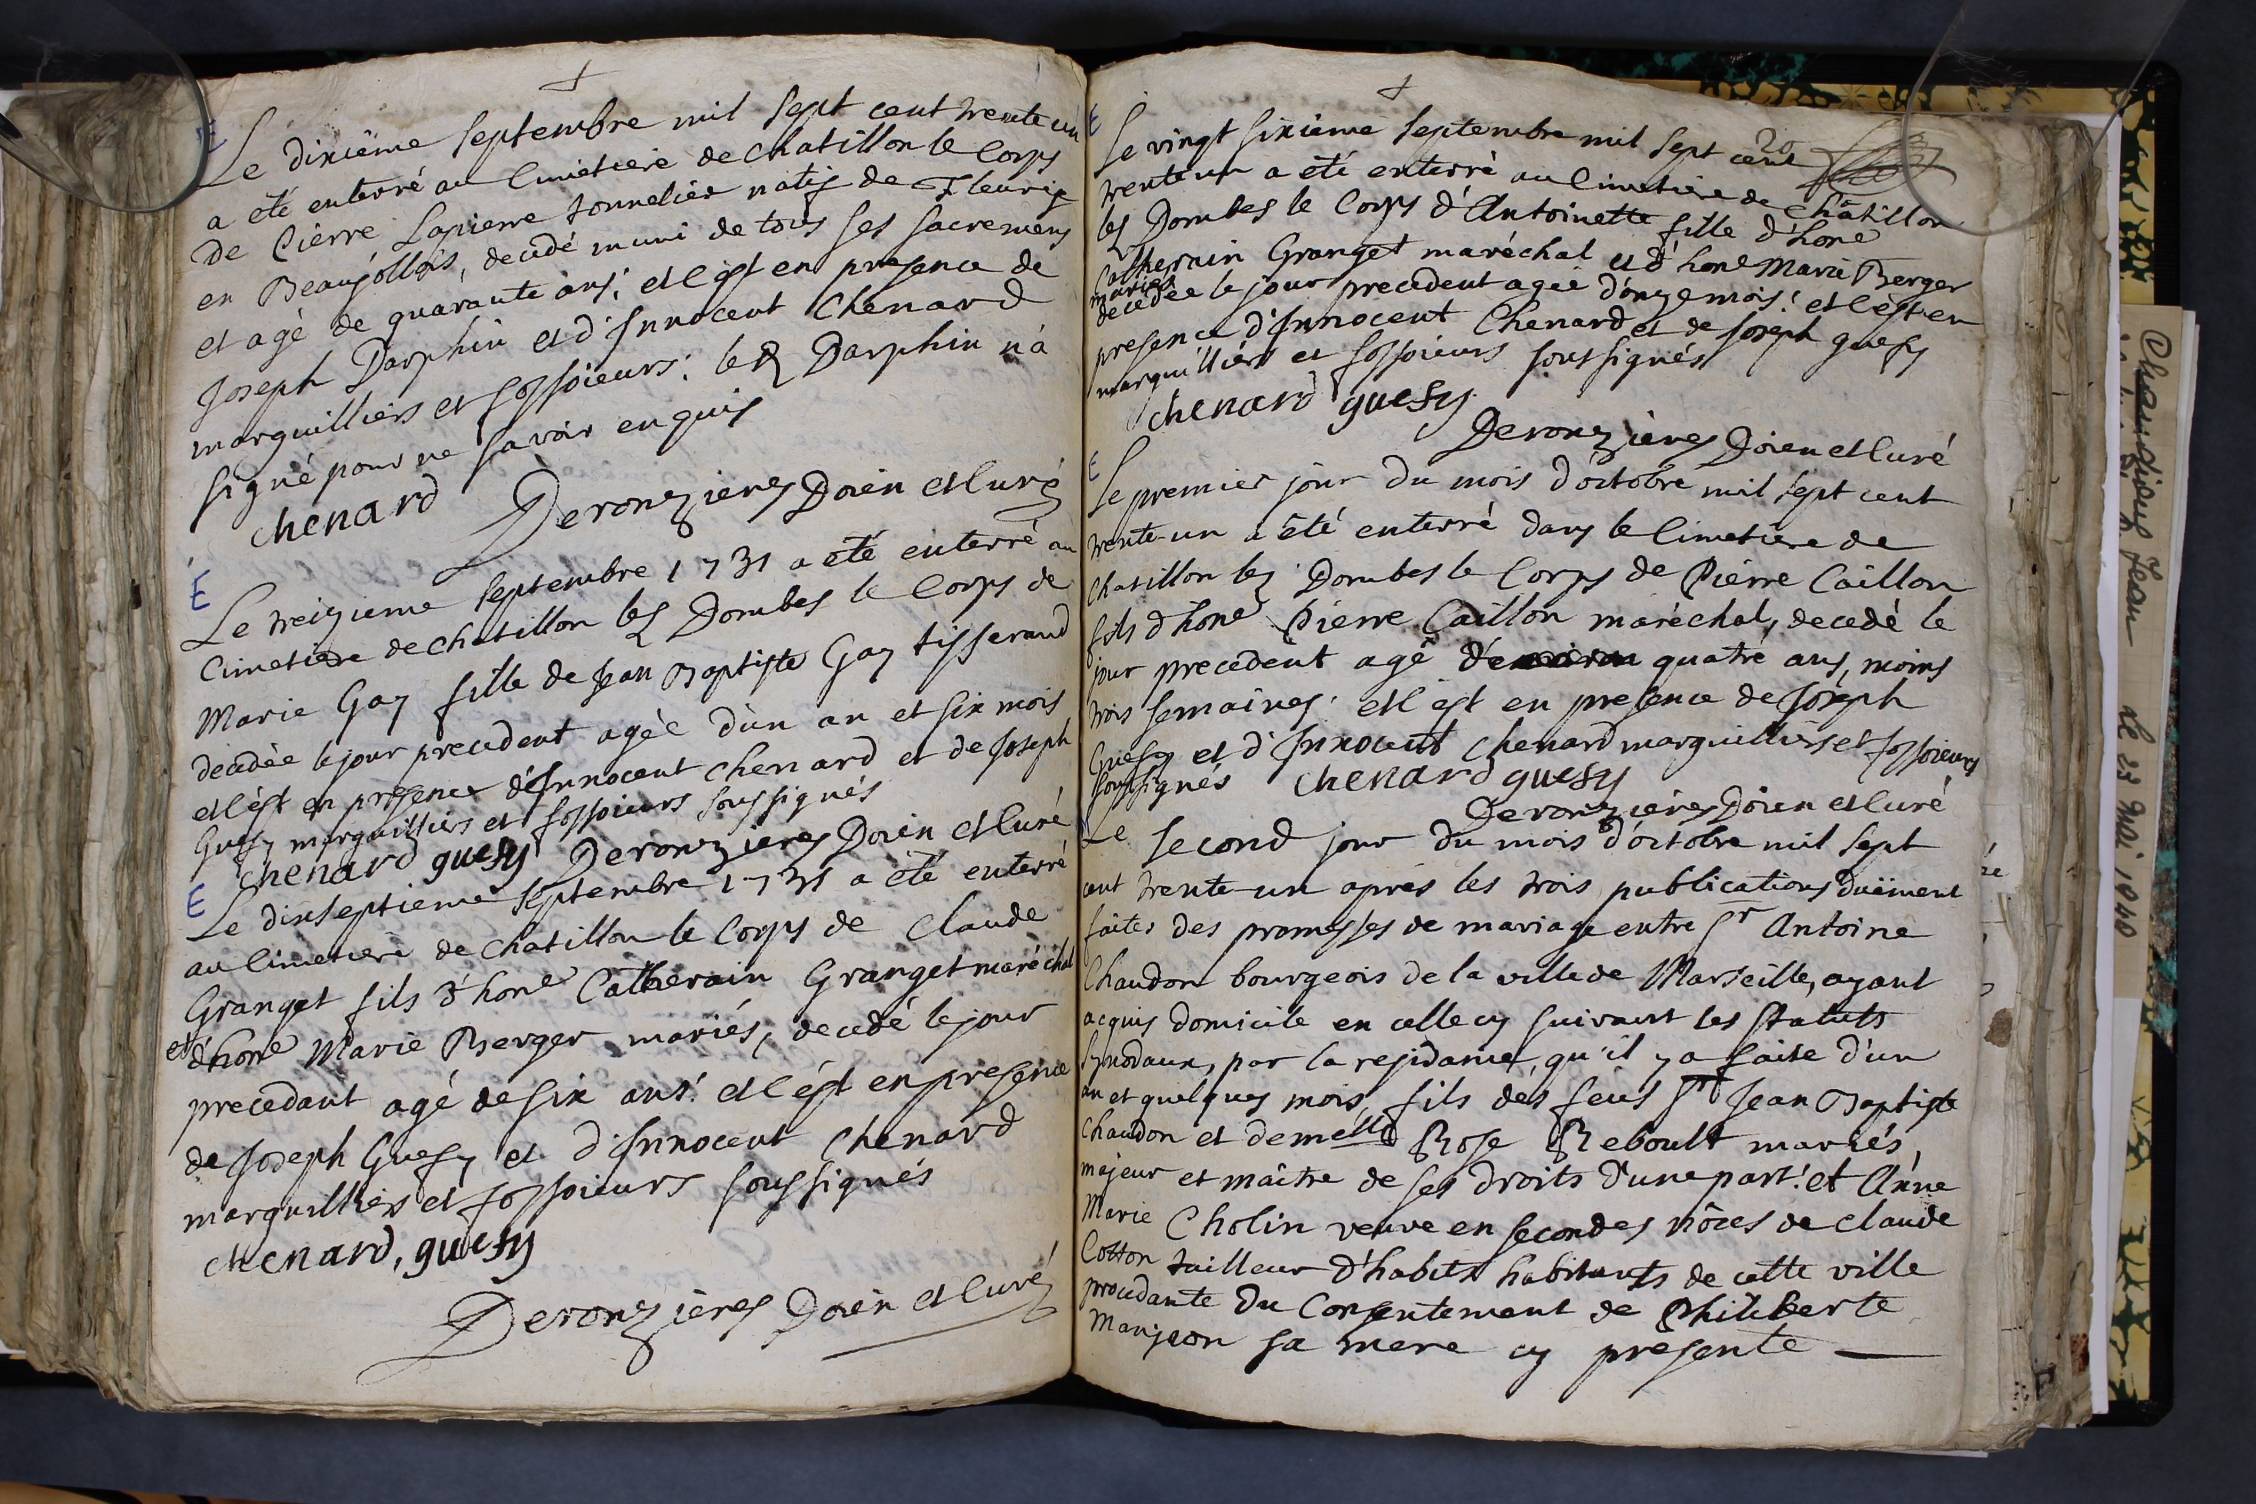 Le dixiême septembre mil sept cent trente un
a eté enterré au Cimetiere de chatillon le Corps
de Pierre Lapierre tonnelier natif de Fleurie
en Beaujollois, decedé muni de tous ses sacremens
et agé de quarante ans; et c'est en presence de
Joseph Darphin et d'Innocent Chenard
marguilliers et fossoieurs; led Darphin n'a
signé pour ne savoir enquis
chenard Deronzieres Doien et Curé
E
Le treizieme septembre 1731 a eté enterré au
Cimetiere de chatillon les Dombes le Corps de
Marie Gay fille de Jean Baptiste Gay tisserand
decedée le jour precedent agée d'un an et six mois
et c'est en presence d'Innocent chenard et de Joseph
Guesy marguilliers et fossoieurs soussignés
chenard guesy Deronzieres Doien et Curé
E
Le dixseptieme septembre 1731 a eté enterré
au Cimetiere de chatillon le Corps de Claude
Granget fils d'hone Catherain Granget maréchal
et d'hone Marie Berger mariés, decedé le jour
precedant agé de six ans: et c'est en presence
de Joseph Guesy et d'Innocent Chenard
marguilliers et fossoieurs soussignés
chenard, guesy
Deronzieres Doien et Curé
20
E
Le vingt sixieme septembre mil sept cent
trente un a eté enterré au Cimetiere de Châtillon
les Dombes le Corps d'Antoinette fille d'hone
Catherain Granget maréchal et d'hone Marie Berger
mariés
decedée le jour precedent agée d'onze mois: et c'est en
presence d'Innocent Chenard et de Joseph guesy
marguilliers et fossoieurs soussignés
chenard guesy
Deronzieres Doien et Curé
E
Le premier jour du mois d'octobre mil sept cent
trente-un a été enterré dans le Cimetiere de
chatillon les Dombes le Corps de Pierre Caillon
fils d'hone Pierre Caillon maréchal, decedé le
jour precedent agé d'environ quatre ans, moins
trois semaines: et c'est en presence de Joseph
Guesy et d'Innocent chenard marguilliers et fossoieurs
soussignés chenard guesy
Deronzieres Doien et Curé
Le second jour du mois d'octobre mil sept
cent trente-un aprés les trois publications duëment
faites des promesses de mariage entre Sr Antoine
Chaudon bourgeois de la ville de Marseille, ayant
acquis domicile en celle cy suivant les statuts
synodaux, par la residance, qu'il y a faite d'un
an et quelques mois, fils des feus Sr Jean Baptiste
Chaudon et demelle Rose Reboult mariés,
majeur et maître de ses droits d'une part: et Anne
Marie Cholin veuve en secondes nôces de claude
Cotton tailleur d'habits habitants de cette ville
procedante du Consentement de Philiberte
Manjeon sa mere cy presente